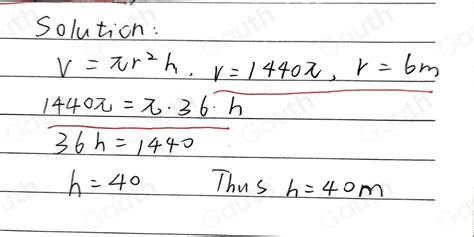 Solution:
V = πr²h, V = 1440π, r = 6m
1440π = π · 36 · h
36h = 1440
h = 40 Thus h = 40m